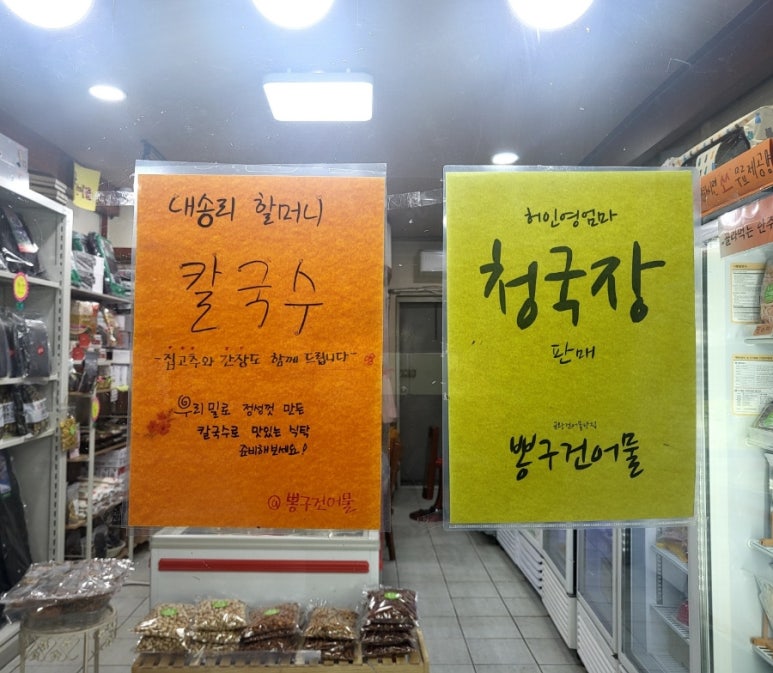 내송리 할머니
칼국수
-집고추와 간장도 함께 드립니다-
우리밀로 정성껏 만든
칼국수로 맛있는 식탁
준비해보세요!
@뽕구건어물
허인영엄마
청국장
판매
뽕구건어물